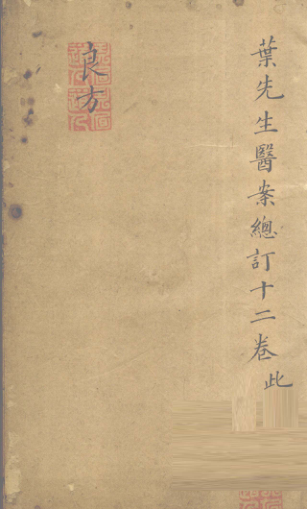 葉先生醫案總訂十二卷此
良方